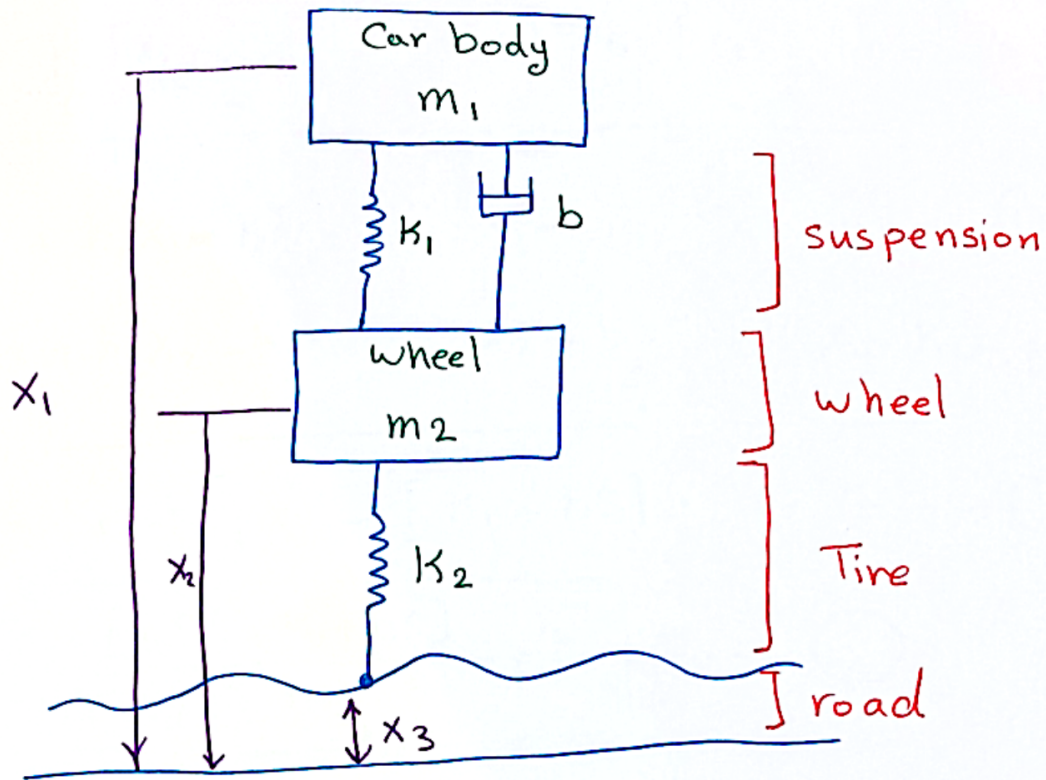 Car body
m1
K1
b
suspension
X1
wheel
m2
wheel
X2
K2
Tire
X3
road